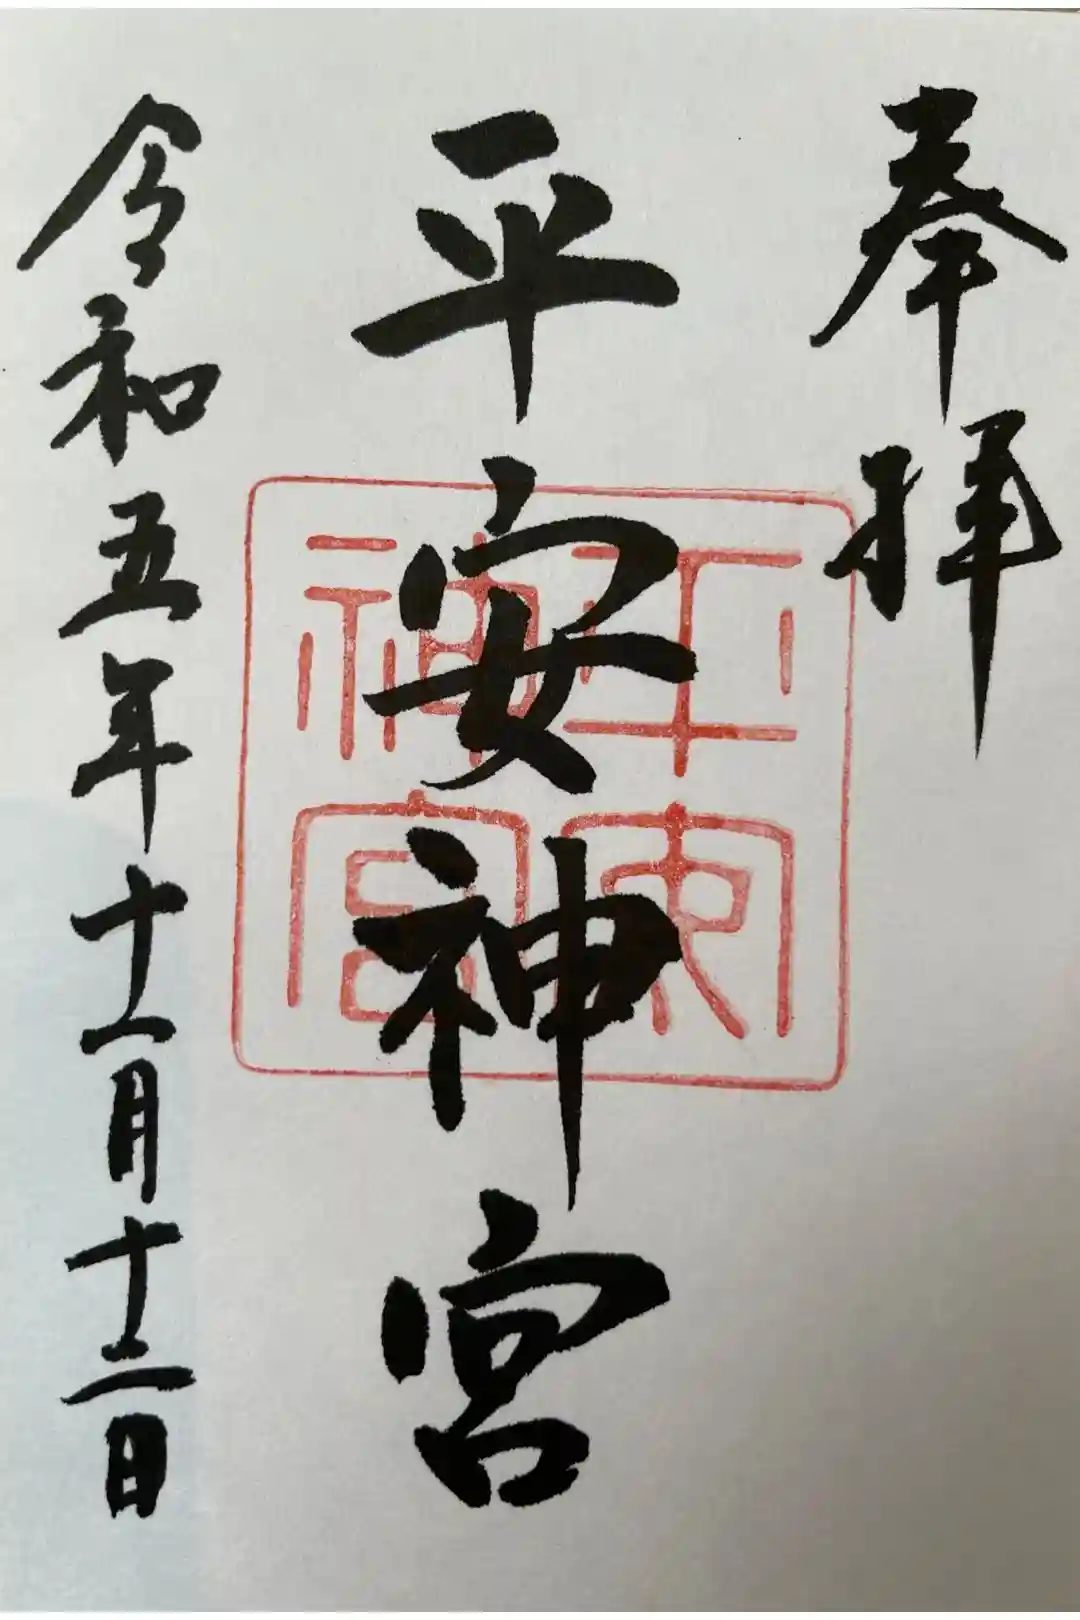 奉拝
平安神宮
平安神宮
令和五年十一月十二日